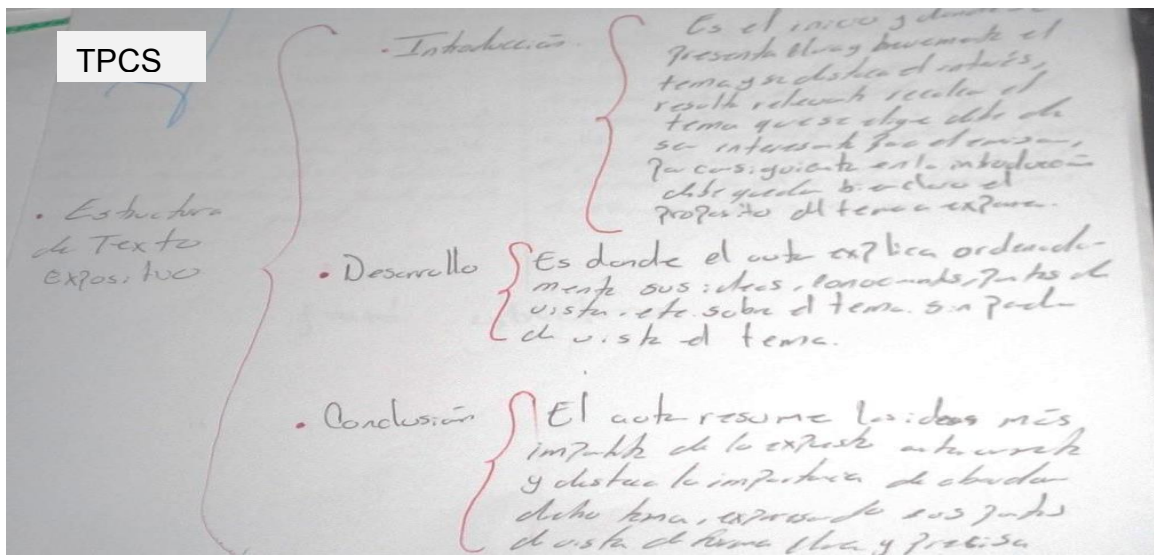 TPCS
• Estructura
de Texto
expositivo
• Introducción
Es el inicio y donde se
presenta clara y brevemente el
tema y se destaca el interés,
resulta relevante recalcar el
tema que se elige debe de
ser interesante para el emisor,
por consiguiente en la introducción
debe quedar bien claro el
proposito del tema a exponer.
• Desarrollo
Es donde el autor explica ordenada-
mente sus ideas, conocimientos, puntos de
vista, etc. sobre el tema sin perder
de vista el tema.
• Conclusión
El autor resume las ideas más
importante de lo expuesto anteriormente
y destaca la importancia de abordar
dicho tema, expresando sus puntos
de vista de forma clara y precisa